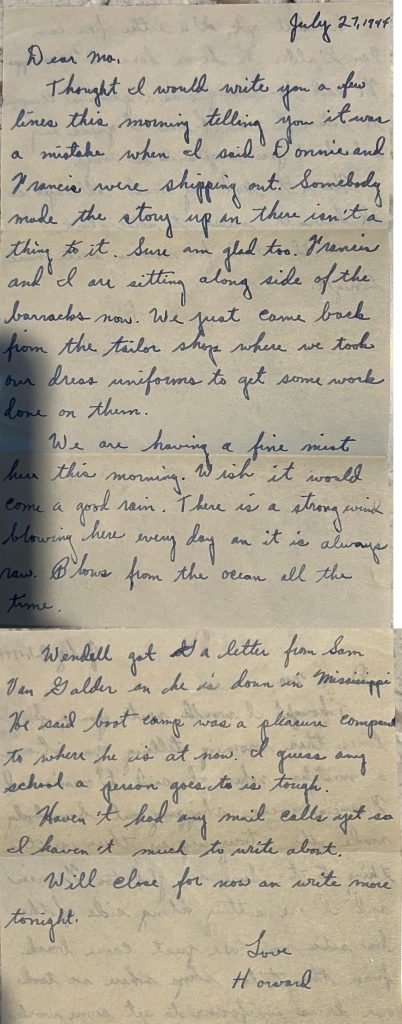 July 27, 1944
Dear Ma,
Thought I would write you a few
lines this morning telling you it was
a mistake when I said Donnie and
Francis were shipping out. Somebody
made the story up an there isn't a
thing to it. Sure am glad too. Francis
and I are sitting along side of the
barracks now. We just came back
from the tailor shop where we took
our dress uniforms to get some work
done on them.
We are having a fine mist
here this morning. Wish it would
come a good rain. There is a strong wind
blowing here every day an it is always
raw. Blows from the ocean all the
time.
Wendell got a letter from Sam
Van Galder an he is down in Mississippi
He said boot camp was a pleasure compared
to where he is at now. I guess any
school a person goes to is tough.
Haven't had any mail calls yet so
I haven't much to write about.
Will close for now an write more
tonight.
Love
Howard